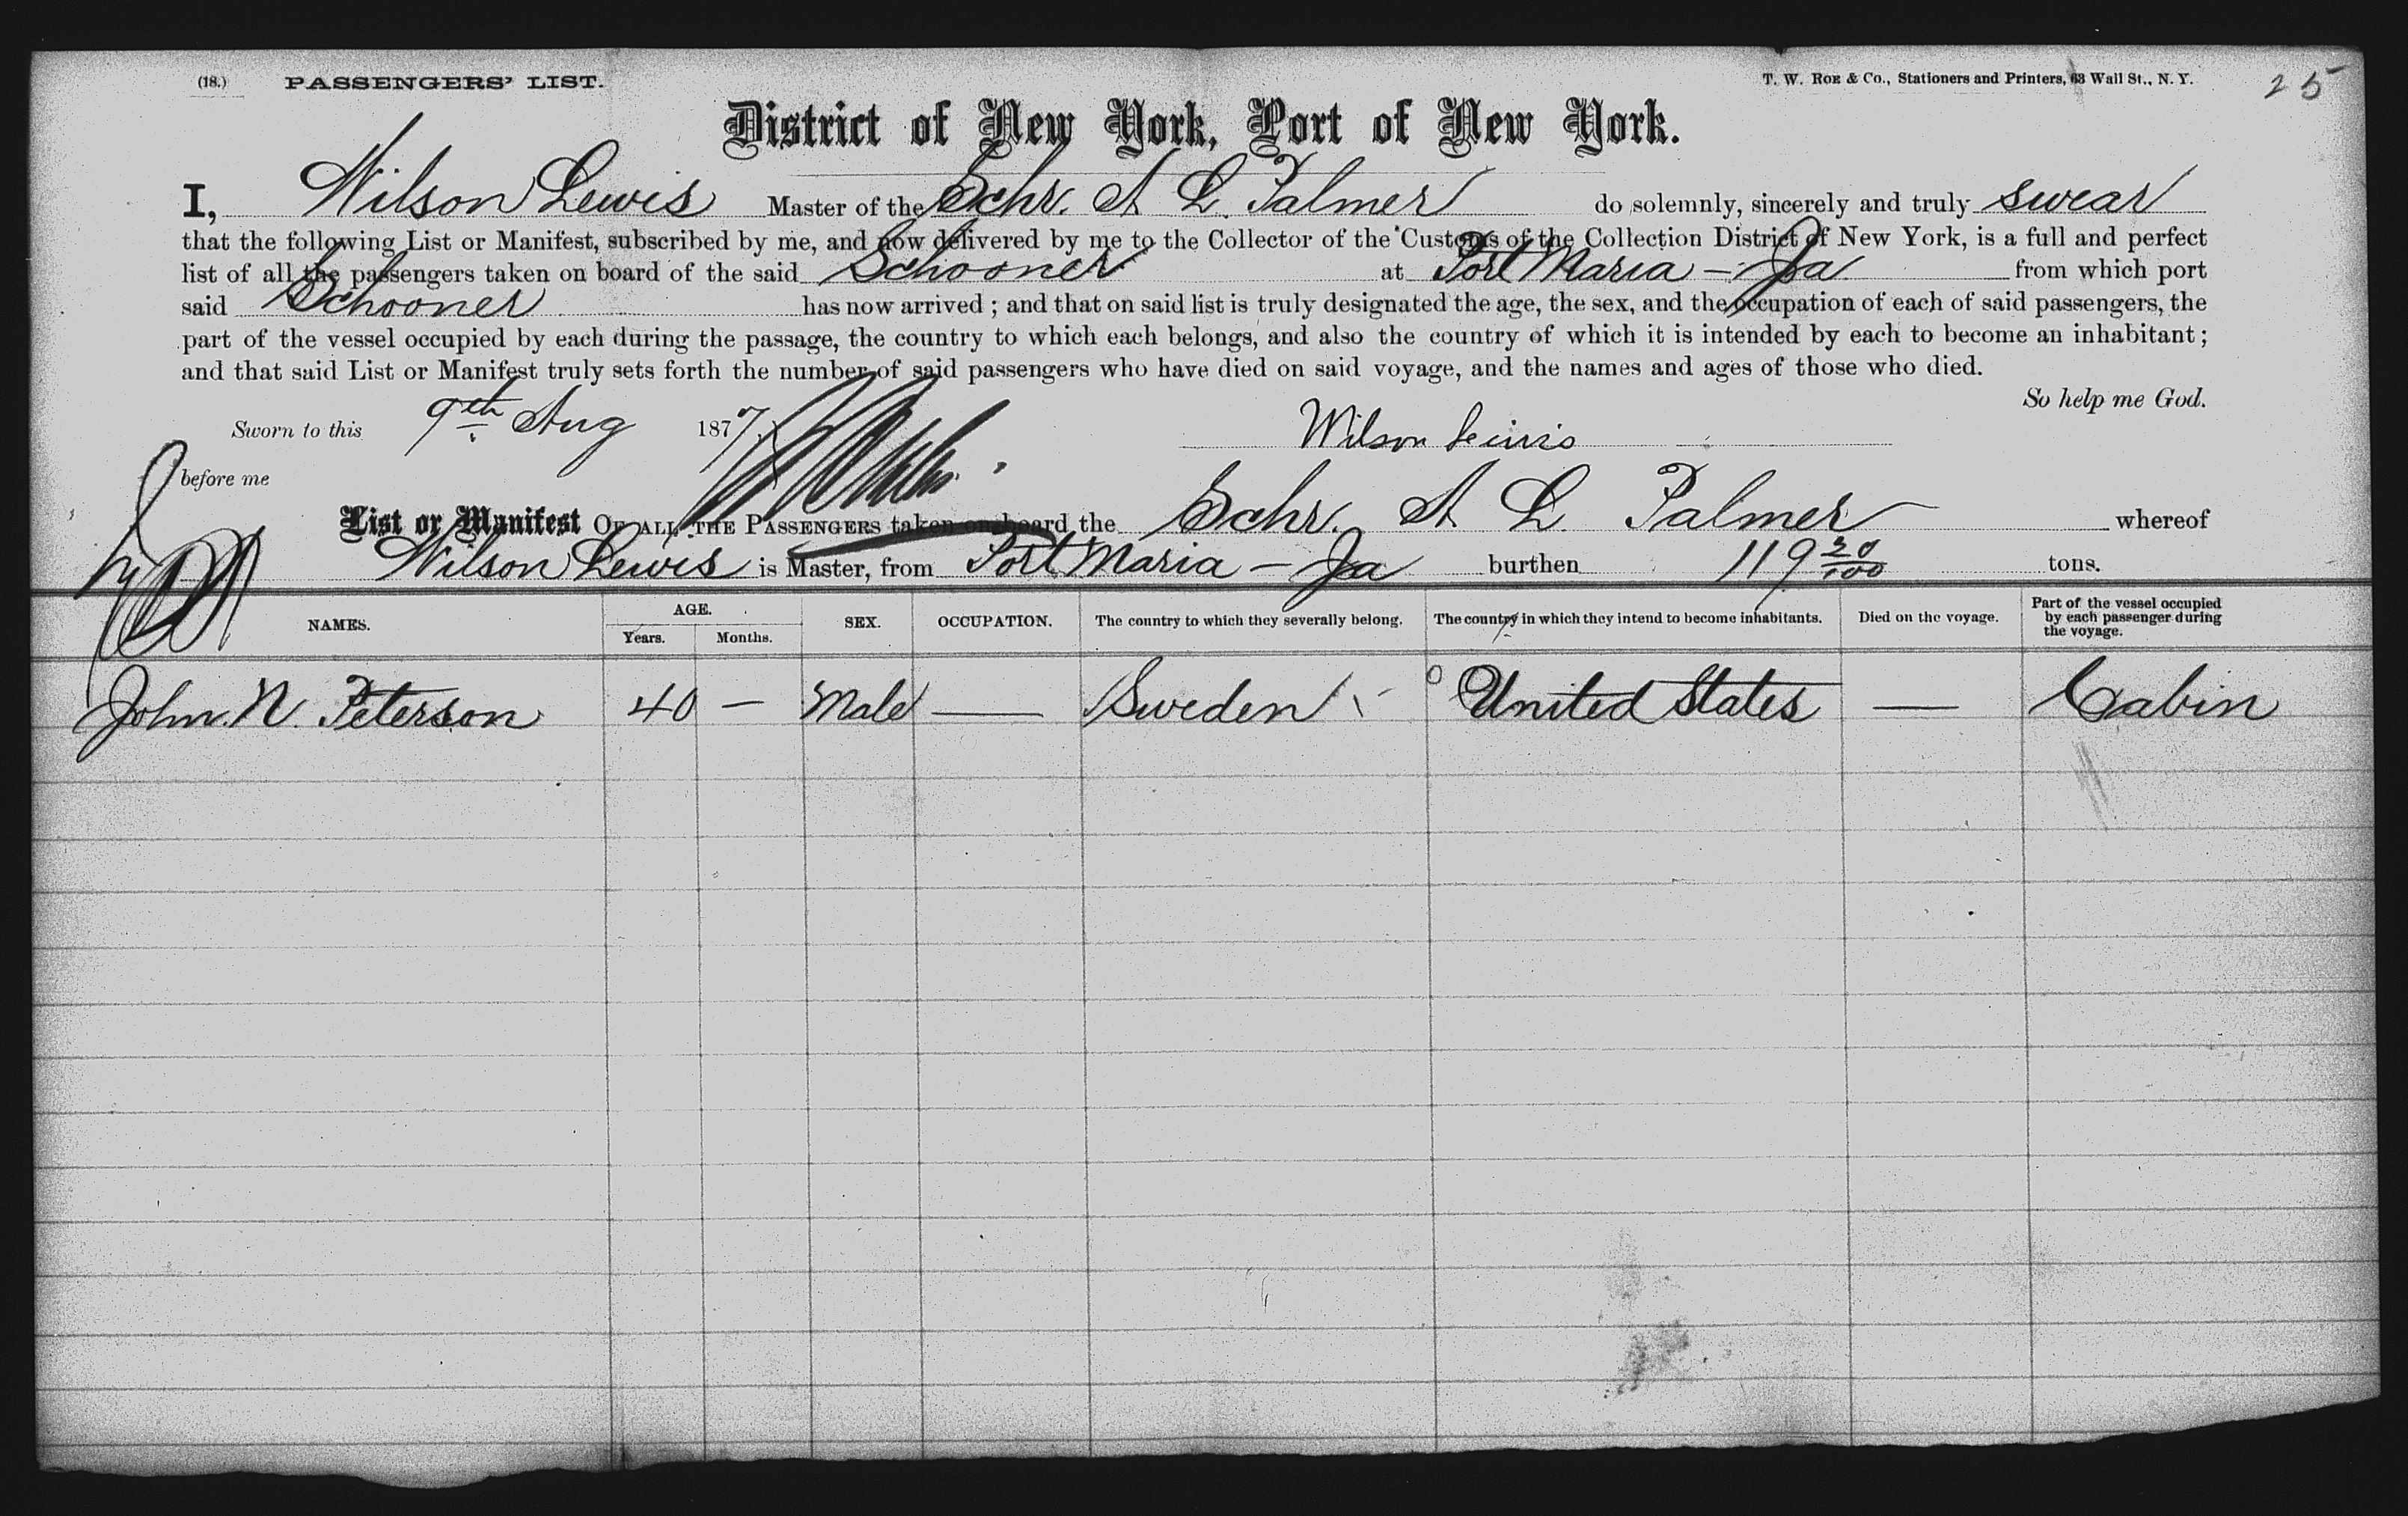 (18.) PASSENGERS' LIST. T. W. ROE & Co., Stationers and Printers, 63 Wall St., N. Y. 25
District of New York, Port of New York.
I, Wilson Lewis Master of the Schr. A L. Palmer do solemnly, sincerely and truly swear
that the following List or Manifest, subscribed by me, and now delivered by me to the Collector of the Customs of the Collection District of New York, is a full and perfect
list of all the passengers taken on board of the said Schooner at Port Maria - Ja from which port
said Schooner has now arrived ; and that on said list is truly designated the age, the sex, and the occupation of each of said passengers, the
part of the vessel occupied by each during the passage, the country to which each belongs, and also the country of which it is intended by each to become an inhabitant ;
and that said List or Manifest truly sets forth the number of said passengers who have died on said voyage, and the names and ages of those who died.
So help me God.
Sworn to this 9th Aug 1877 Wilson Lewis
before me
List or Manifest OF ALL THE PASSENGERS taken on board the Schr. A L Palmer whereof
Wilson Lewis is Master, from Port Maria - Ja burthen 119 20/100 tons.
NAMES. AGE. Years. Months. SEX. OCCUPATION. The country to which they severally belong. The country in which they intend to become inhabitants. Died on the voyage. Part of the vessel occupied by each passenger during the voyage.
John N. Peterson 40 — Male — Sweden United States — Cabin